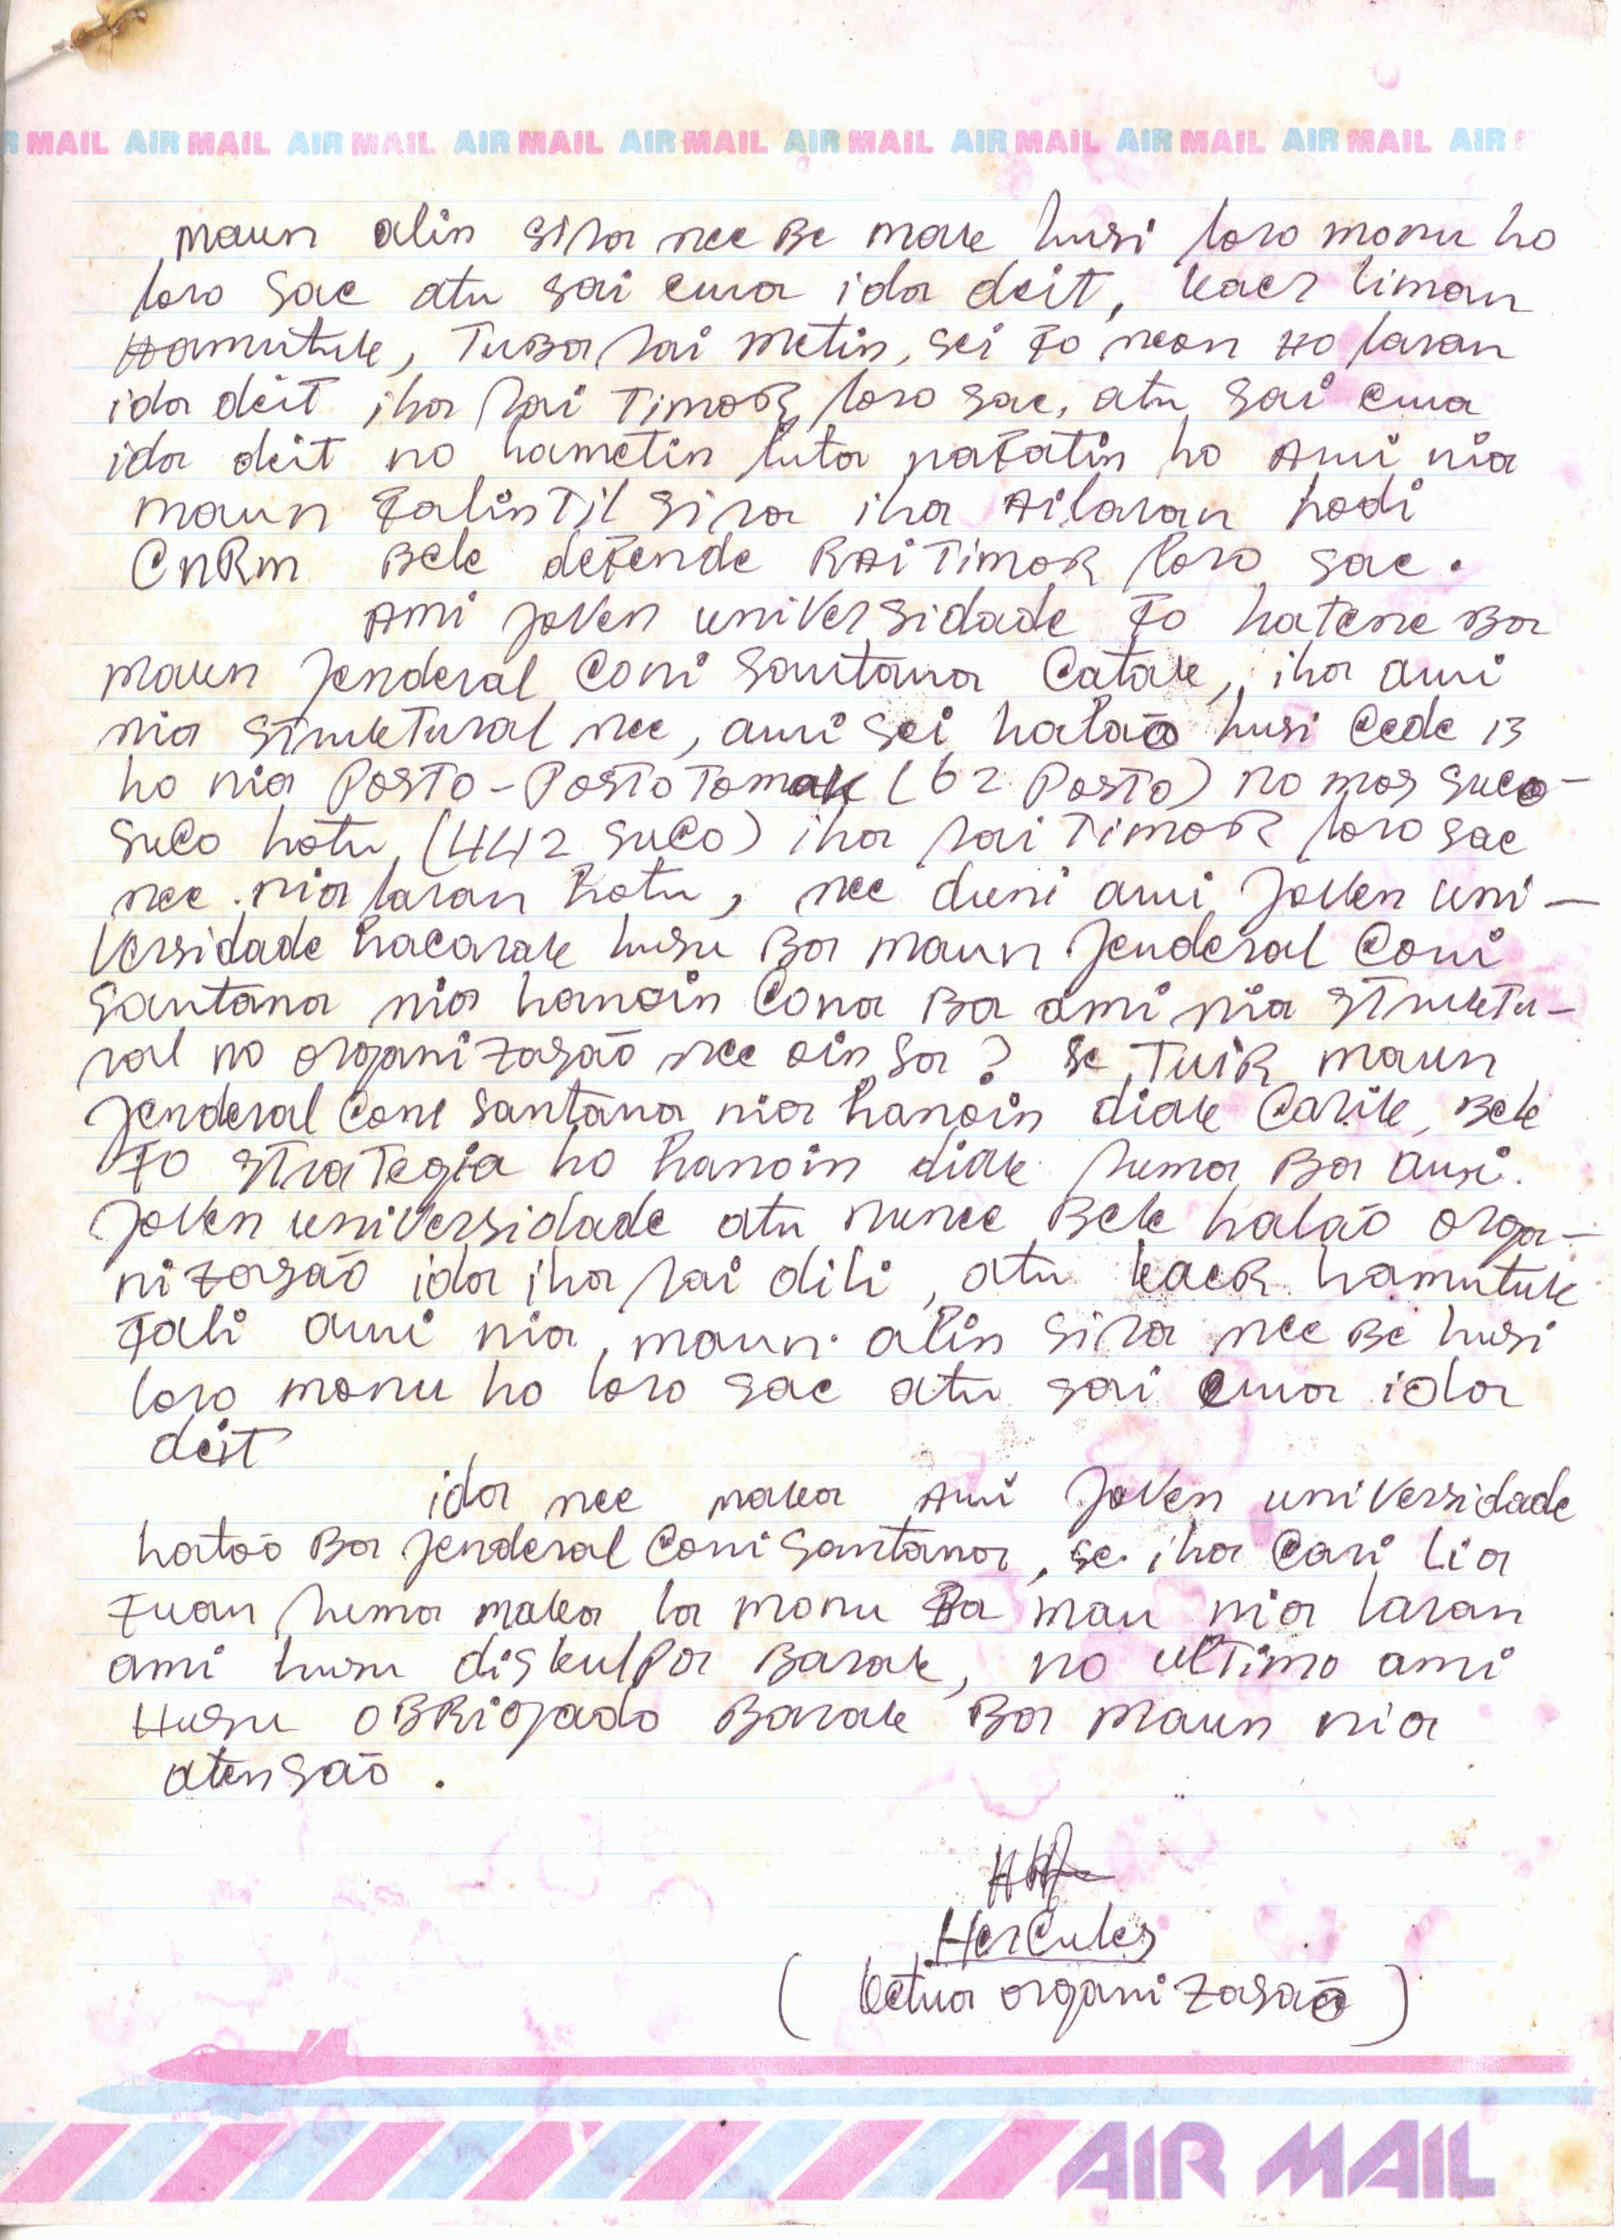 AIR MAIL AIR MAIL AIR MAIL AIR MAIL AIR MAIL AIR MAIL AIR MAIL AIR MAIL AIR MAIL AIR
maun alin sira nee Be mak husi loro monu ho
loro sae atu sai ema ida deit, kaer liman
Hamutuk, TuBa rai metin, sei Fo neon Ho laran
ida deit iha rai TimoR loro sae, atu sai ema
ida deit no hametin luta naFatin ho Ami nia
maun FalinTil sira iha Ailaran hodi
CnRm Bele deFende RAi TimoR loro sae.
Ami joven universidade Fo hatene Ba
maun jenderal Coni Santana Catak, iha ami
nia strukTural nee, ami sei halaõ husi Cede 13
ho nia PosTo-PosTo Tomak (62 PosTo) no mos suco-
suCo hotu (442 suCo) iha rai TimoR loro sae
nee nia laran hotu, nee duni ami joven uni-
versidade hacarak husu Ba maun jenderal Coni
Santana nia hanoin Cona Ba ami nia strukTu-
ral no organizasaõ nee oin sa? se TuiR maun
jenderal Coni Santana nia hanoin diak Carik, Bele
Fo straTegia ho hanoin diak ruma Ba ami.
joven universidade atu nunee Bele halaõ orga-
nizasaõ ida iha rai dili, atu kaeR hamutuk
Fali ami nia maun alin sira nee Be husi
loro monu ho loro sae atu sai ema ida
deit
ida nee maka Ami joven universidade
hatoõ Ba jenderal Coni Santana, se iha Cari lia
Fuan ruma maka la monu Ba mau nia laran
ami husu diskulPa Barak, no ulTimo ami
Husu oBRigado Barak Ba maun nia
atensaõ.
Hercules
(ketua organizasaõ)
AIR MAIL